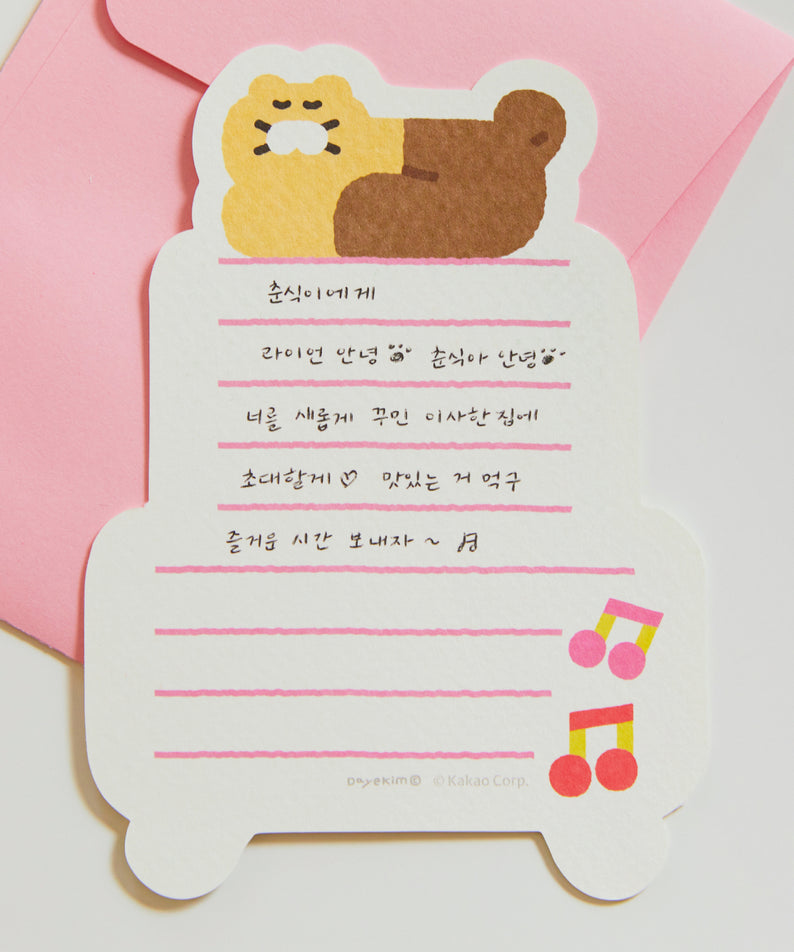 춘식이에게
라이언 안녕 춘식아 안녕
너를 새롭게 꾸민 이사한 집에
초대할게♡ 맛있는 거 먹구
즐거운 시간 보내자 ~ ♫
Dayekim© © Kakao Corp.